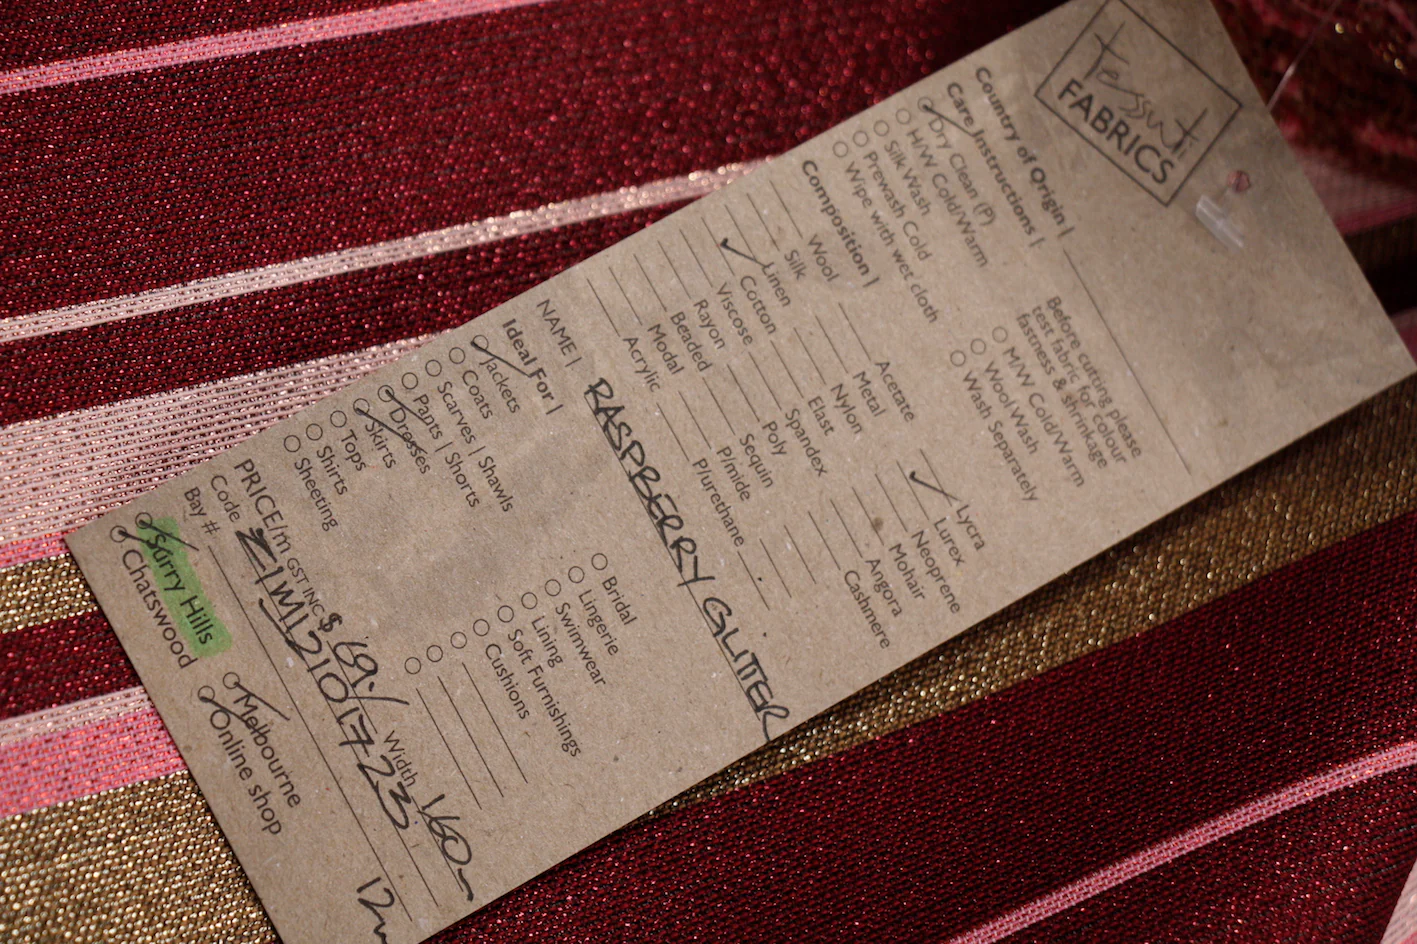 Tessuti
FABRICS
Country of Origin |
Care Instructions |
Dry Clean (P)
H/W Cold/Warm
Silk Wash
Prewash Cold
Wipe with wet cloth
Before cutting please
test fabric for colour
fastness & shrinkage
M/W Cold/Warm
Wool Wash
Wash Separately
Composition |
Wool
Silk
Linen
Cotton
Viscose
Rayon
Beaded
Modal
Acrylic
Acetate
Metal
Nylon
Elast
Spandex
Poly
Sequin
P/mide
P/urethane
Lycra
Lurex
Neoprene
Mohair
Angora
Cashmere
NAME | RASPBERRY GLITTER
Ideal For |
Jackets
Coats
Scarves | Shawls
Pants | Shorts
Dresses
Skirts
Tops
Shirts
Sheeting
Bridal
Lingerie
Swimwear
Lining
Soft Furnishings
Cushions
PRICE/m GST INC $ 69./ Width 1.60m
Code Z1WM12101723
Bay #
Surry Hills
Chatswood
Melbourne
Online shop